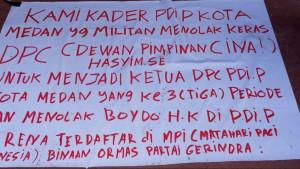 KAMI KADER PDiP KOTA
MEDAN yg MILITAN MENOLAK KERAS
DPC (DEWAN PIMPINAN CiNA!)
HASYIM.SE
UNTUK MENJADI KETUA DPC PDi.P
KOTA MEDAN YANG KE 3 (TiGA) PERiODE
DAN MENOLAK BOYDO H.K Di PDi.P
KRENA TERDAFTAR di MPi (MATAHARi PAGi
INDONESiA), BiNAAN ORMAS PARTAI GERiNDRA.